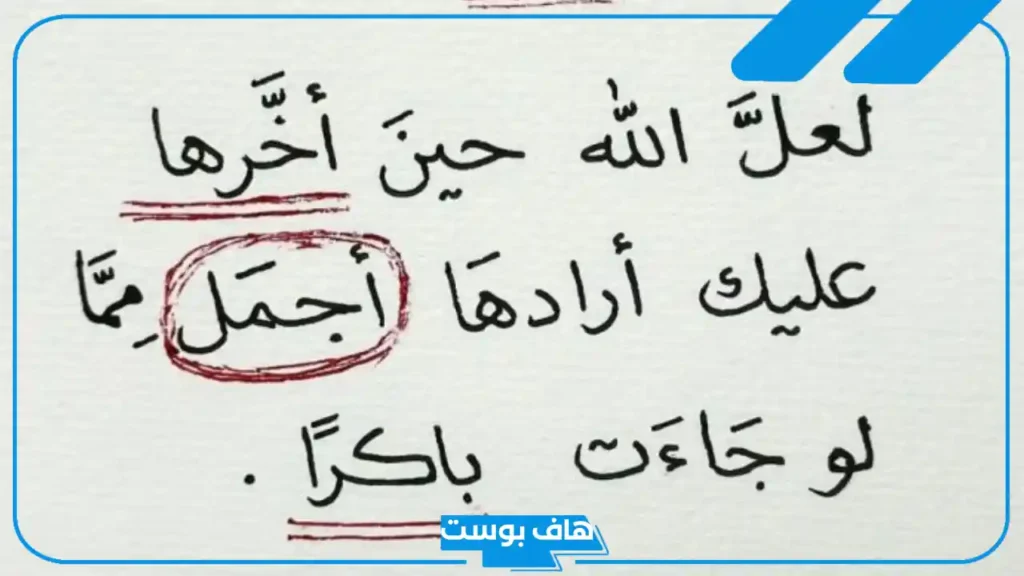 لعلَّ الله حينَ أخَّرها
عليك أرادهَا أجمَل مِمَّا
لو جَاءَت باكرًا .
هاف بوست